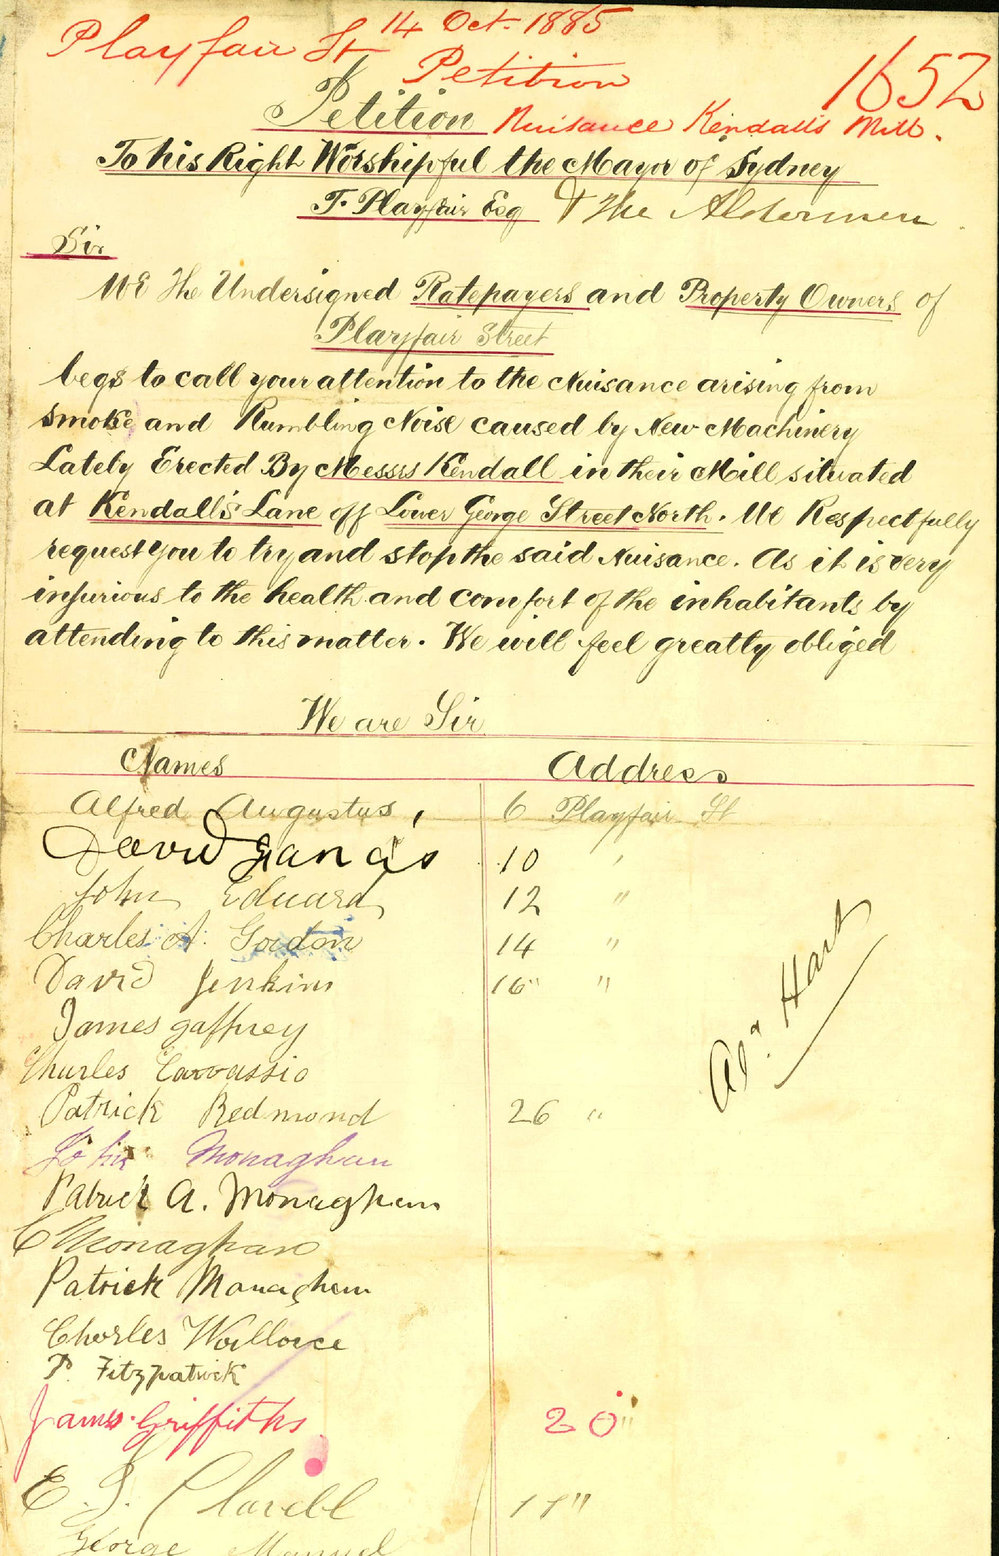 Playfair St 14 Oct. 1885
Petition
1652
Petition Nuisance Kendall's Mill.
To his Right Worshipful the Mayor of Sydney
T. Playfair Esq & The Aldermen
Sir
We The Undersigned Ratepayers and Property Owners of
Playfair Street
begs to call your attention to the Nuisance arising from
smoke and Rumbling Noise caused by New Machinery
Lately Erected By Messrs Kendall in their Mill situated
at Kendall's Lane off Lower George Street North. We Respectfully
request you to try and stop the said Nuisance. As it is very
injurious to the health and comfort of the inhabitants by
attending to this matter. We will feel greatly obliged
We are Sir
Names Address
Alfred Augustus, 6 Playfair St
David 10 "
John Eduard 12 "
Charles A. Gordon 14 "
David Jenkins 16 "
James Gaffney
Charles
Patrick Redmond 26 "
John Monaghan
Patrick A. Monaghan
C Monaghan
Patrick Monaghan
Charles Wallace
P. Fitzpatrick
James Griffiths 20 "
E. Clavell "
George Manuel
Ald. Hart